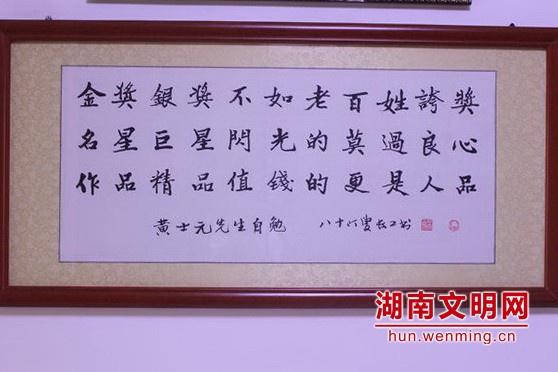 金獎銀獎不如老百姓誇獎
名星巨星閃光的莫過良心
作品精品值錢的更是人品
黄士元先生自勉 八十六叟
湖南文明网
hun.wenming.cn